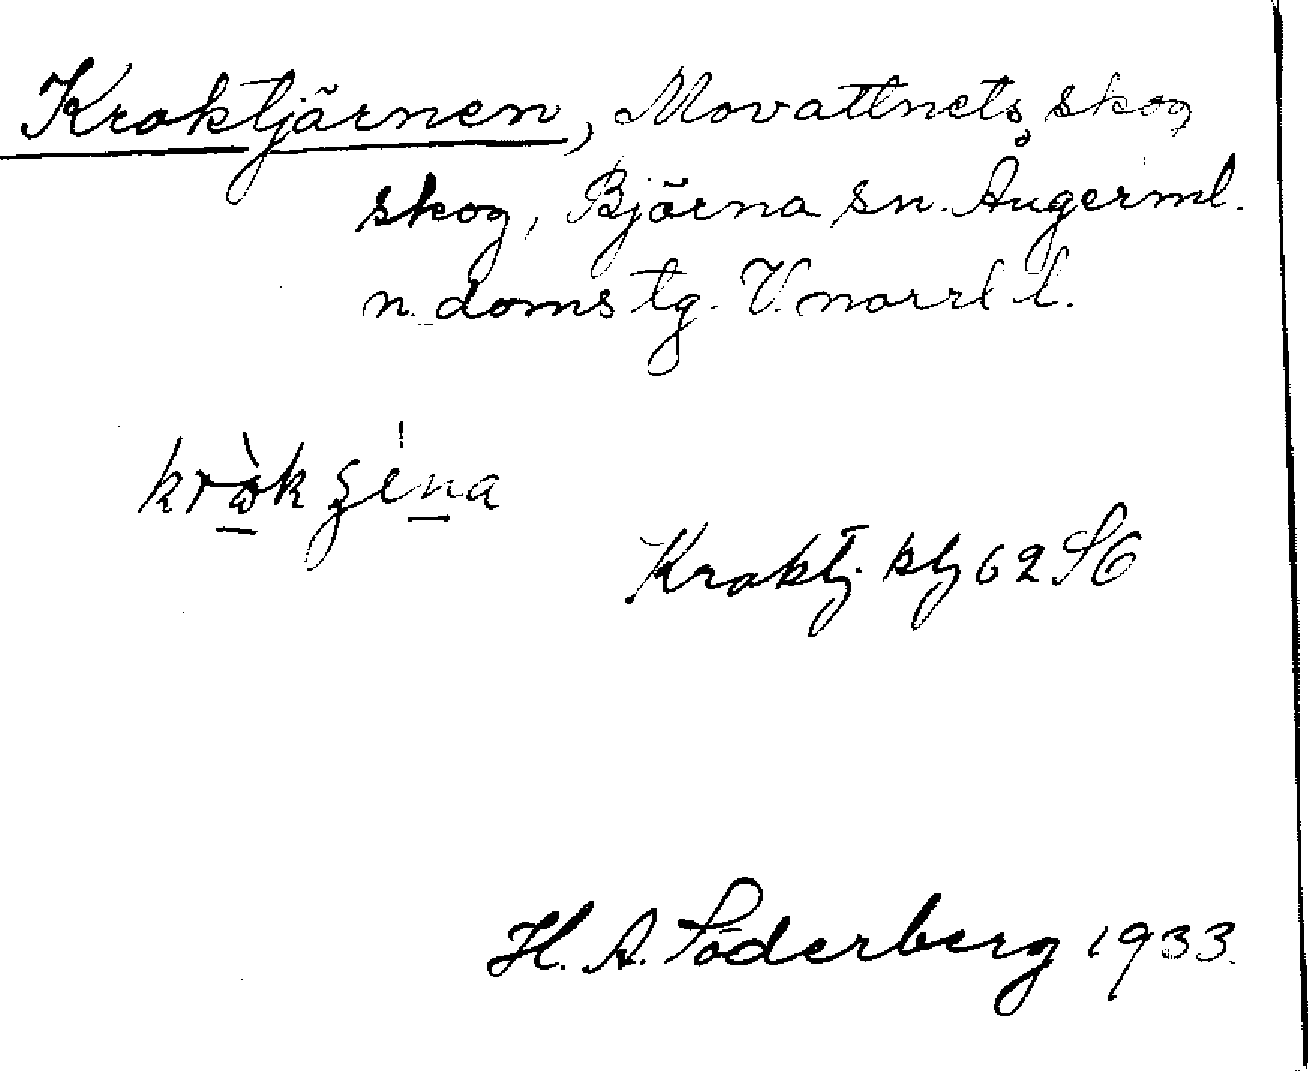 Kroktjärnen, Movattnets skog
skog, Björna sn. Ångerml.
n. doms tg. V. norrl l.
Kroktj. kbl 62 SO
H. A. Söderberg 1933.